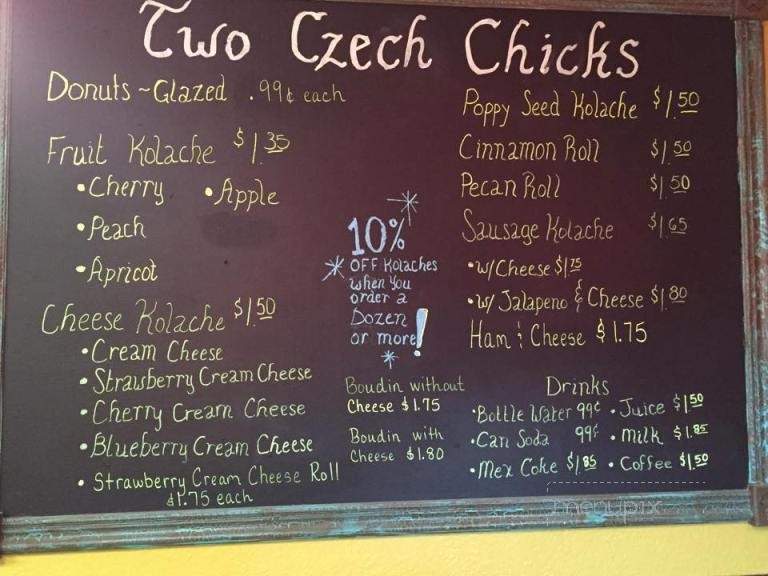 Two Czech Chicks
Donuts ~ Glazed .99¢ each
Fruit Kolache $1.35
• Cherry • Apple
• Peach
• Apricot
Cheese Kolache $1.50
• Cream Cheese
• Strawberry Cream Cheese
• Cherry Cream Cheese
• Blueberry Cream Cheese
• Strawberry Cream Cheese Roll
$1.75 each
10%
OFF Kolaches
when you
order a
Dozen
or more!
Boudin without
Cheese $1.75
Boudin with
Cheese $1.80
Poppy Seed Kolache $1.50
Cinnamon Roll $1.50
Pecan Roll $1.50
Sausage Kolache $1.65
• w/Cheese $1.75
• w/ Jalapeno & Cheese $1.80
Ham & Cheese $1.75
Drinks
• Bottle Water 99¢ • Juice $1.50
• Can Soda 99¢ • Milk $1.85
• Mex Coke $1.85 • Coffee $1.50
menupix